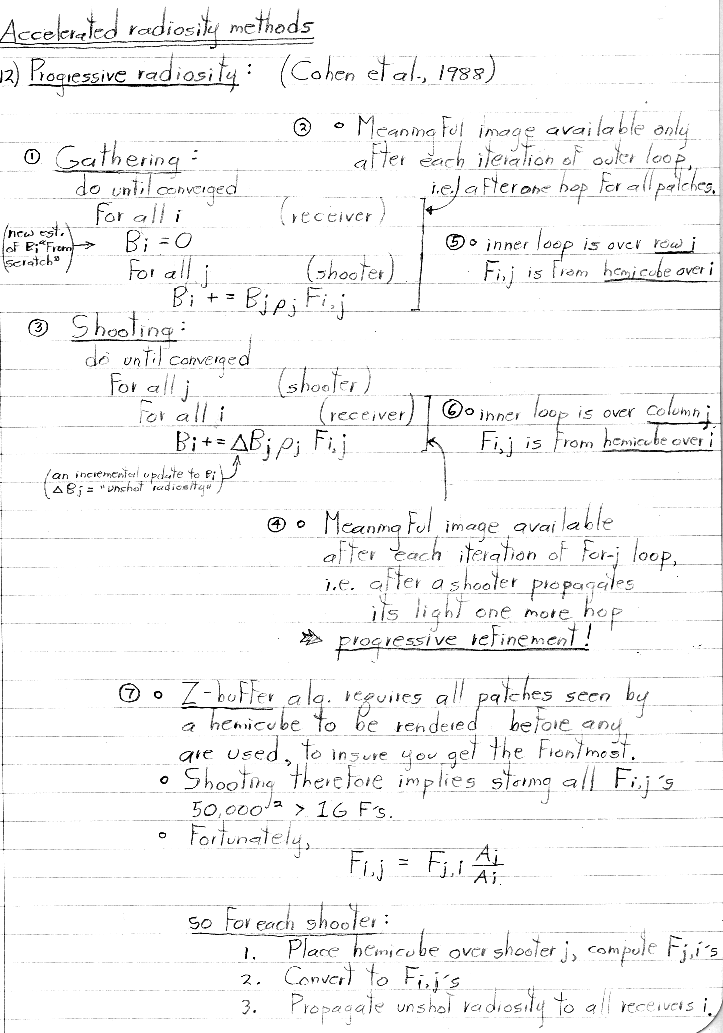 Accelerated radiosity methods
12) Progressive radiosity: (Cohen et al., 1988)
② ∘ Meaningful image available only
after each iteration of outer loop,
i.e., after one hop for all patches.
① Gathering:
do until converged
for all i (receiver)
(new est. of Bi "from scratch") → Bi = 0
for all j (shooter)
Bi += Bj ρj Fi,j
⑤ ∘ inner loop is over row j
Fi,j is from hemicube over i
③ Shooting:
do until converged
for all j (shooter)
for all i (receiver)
Bi += ΔBj ρj Fi,j
(an incremental update to Bi)
(ΔBj = "unshot radiosity")
⑥ ∘ inner loop is over column j
Fi,j is from hemicube over i
④ ∘ Meaningful image available
after each iteration of for-j loop,
i.e. after a shooter propagates
its light one more hop
⇒ progressive refinement!
⑦ ∘ Z-buffer alg. requires all patches seen by
a hemicube to be rendered before any
are used, to insure you get the frontmost.
∘ Shooting therefore implies storing all Fi,j's
50,000² > 1G F's.
∘ Fortunately,
Fi,j = Fj,i Aj/Ai
so for each shooter:
1. Place hemicube over shooter j, compute Fj,i's
2. Convert to Fi,j's
3. Propagate unshot radiosity to all receivers i.